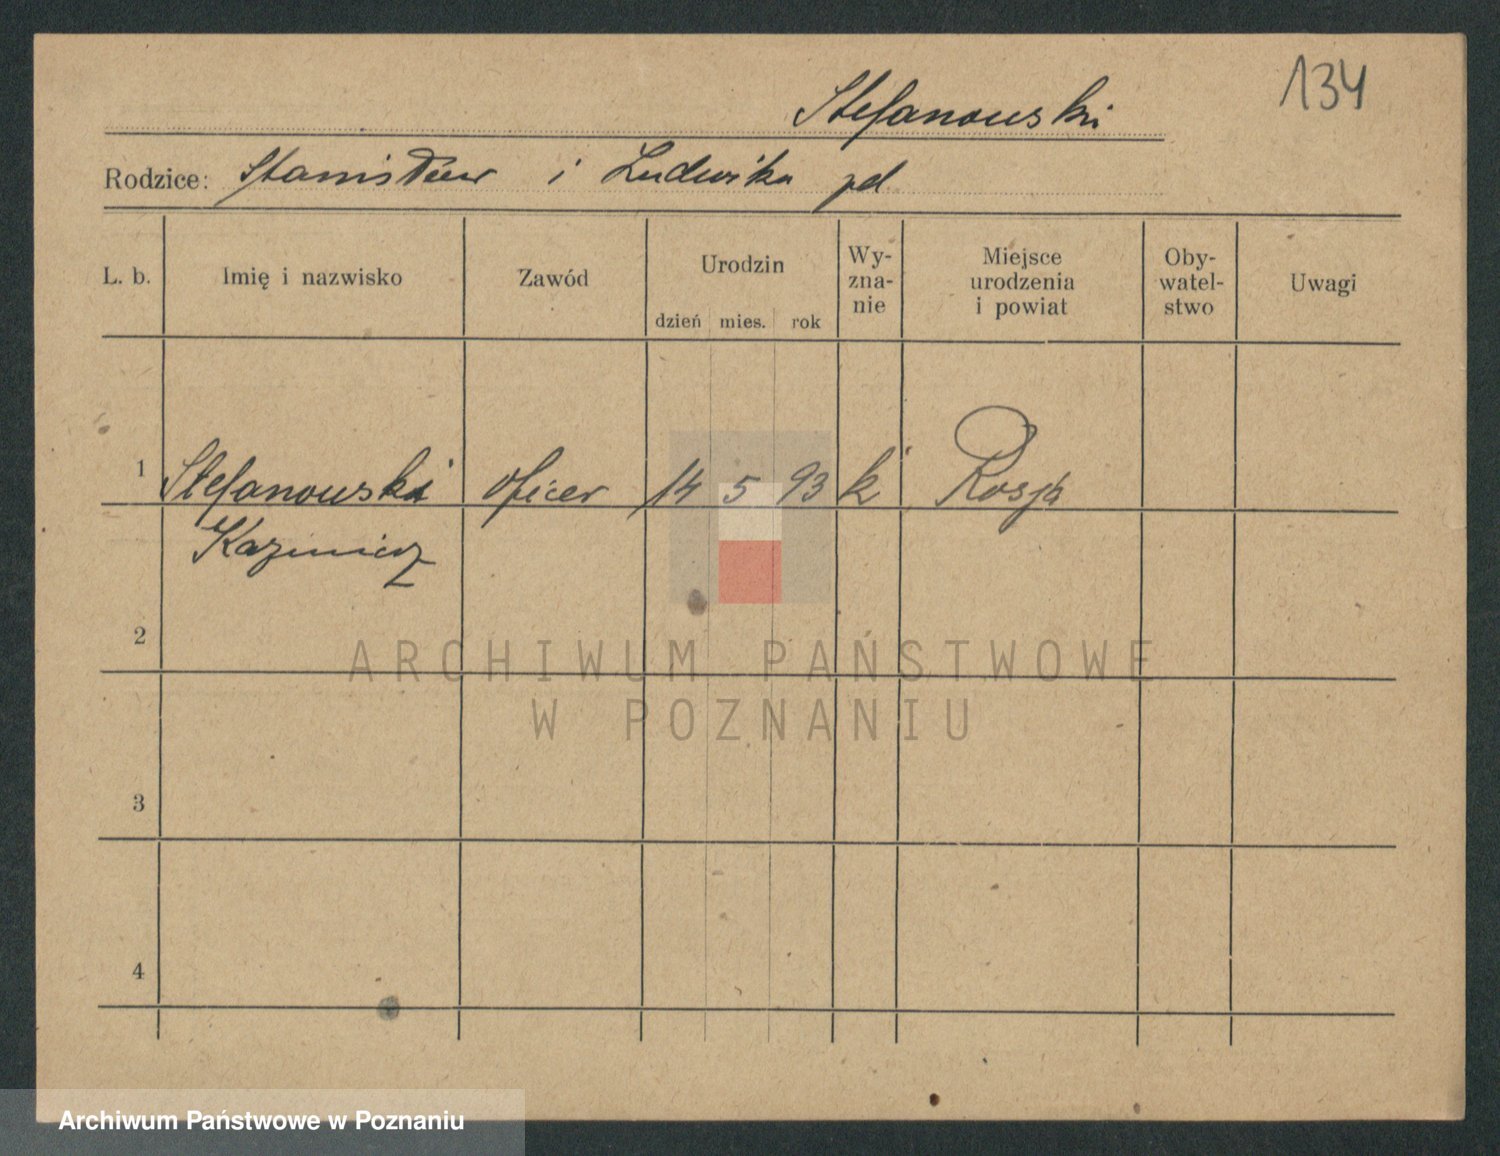 134
Stefanowski
Rodzice: Stanisław i Ludwika
L. b.
Imię i nazwisko
Zawód
Urodzin
dzień mies. rok
Wy-
zna-
nie
Miejsce
urodzenia
i powiat
Oby-
watel-
stwo
Uwagi
1 Stefanowski oficer 14 5 93 k Rosja
Kazimierz
2
3
4
ARCHIWUM PAŃSTWOWE
W POZNANIU
Archiwum Państwowe w Poznaniu